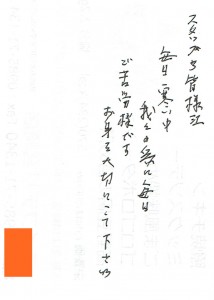 スタッフの皆様江
毎日寒い中
我々の為に毎日
ご苦労様です
お身を大切にして下さい